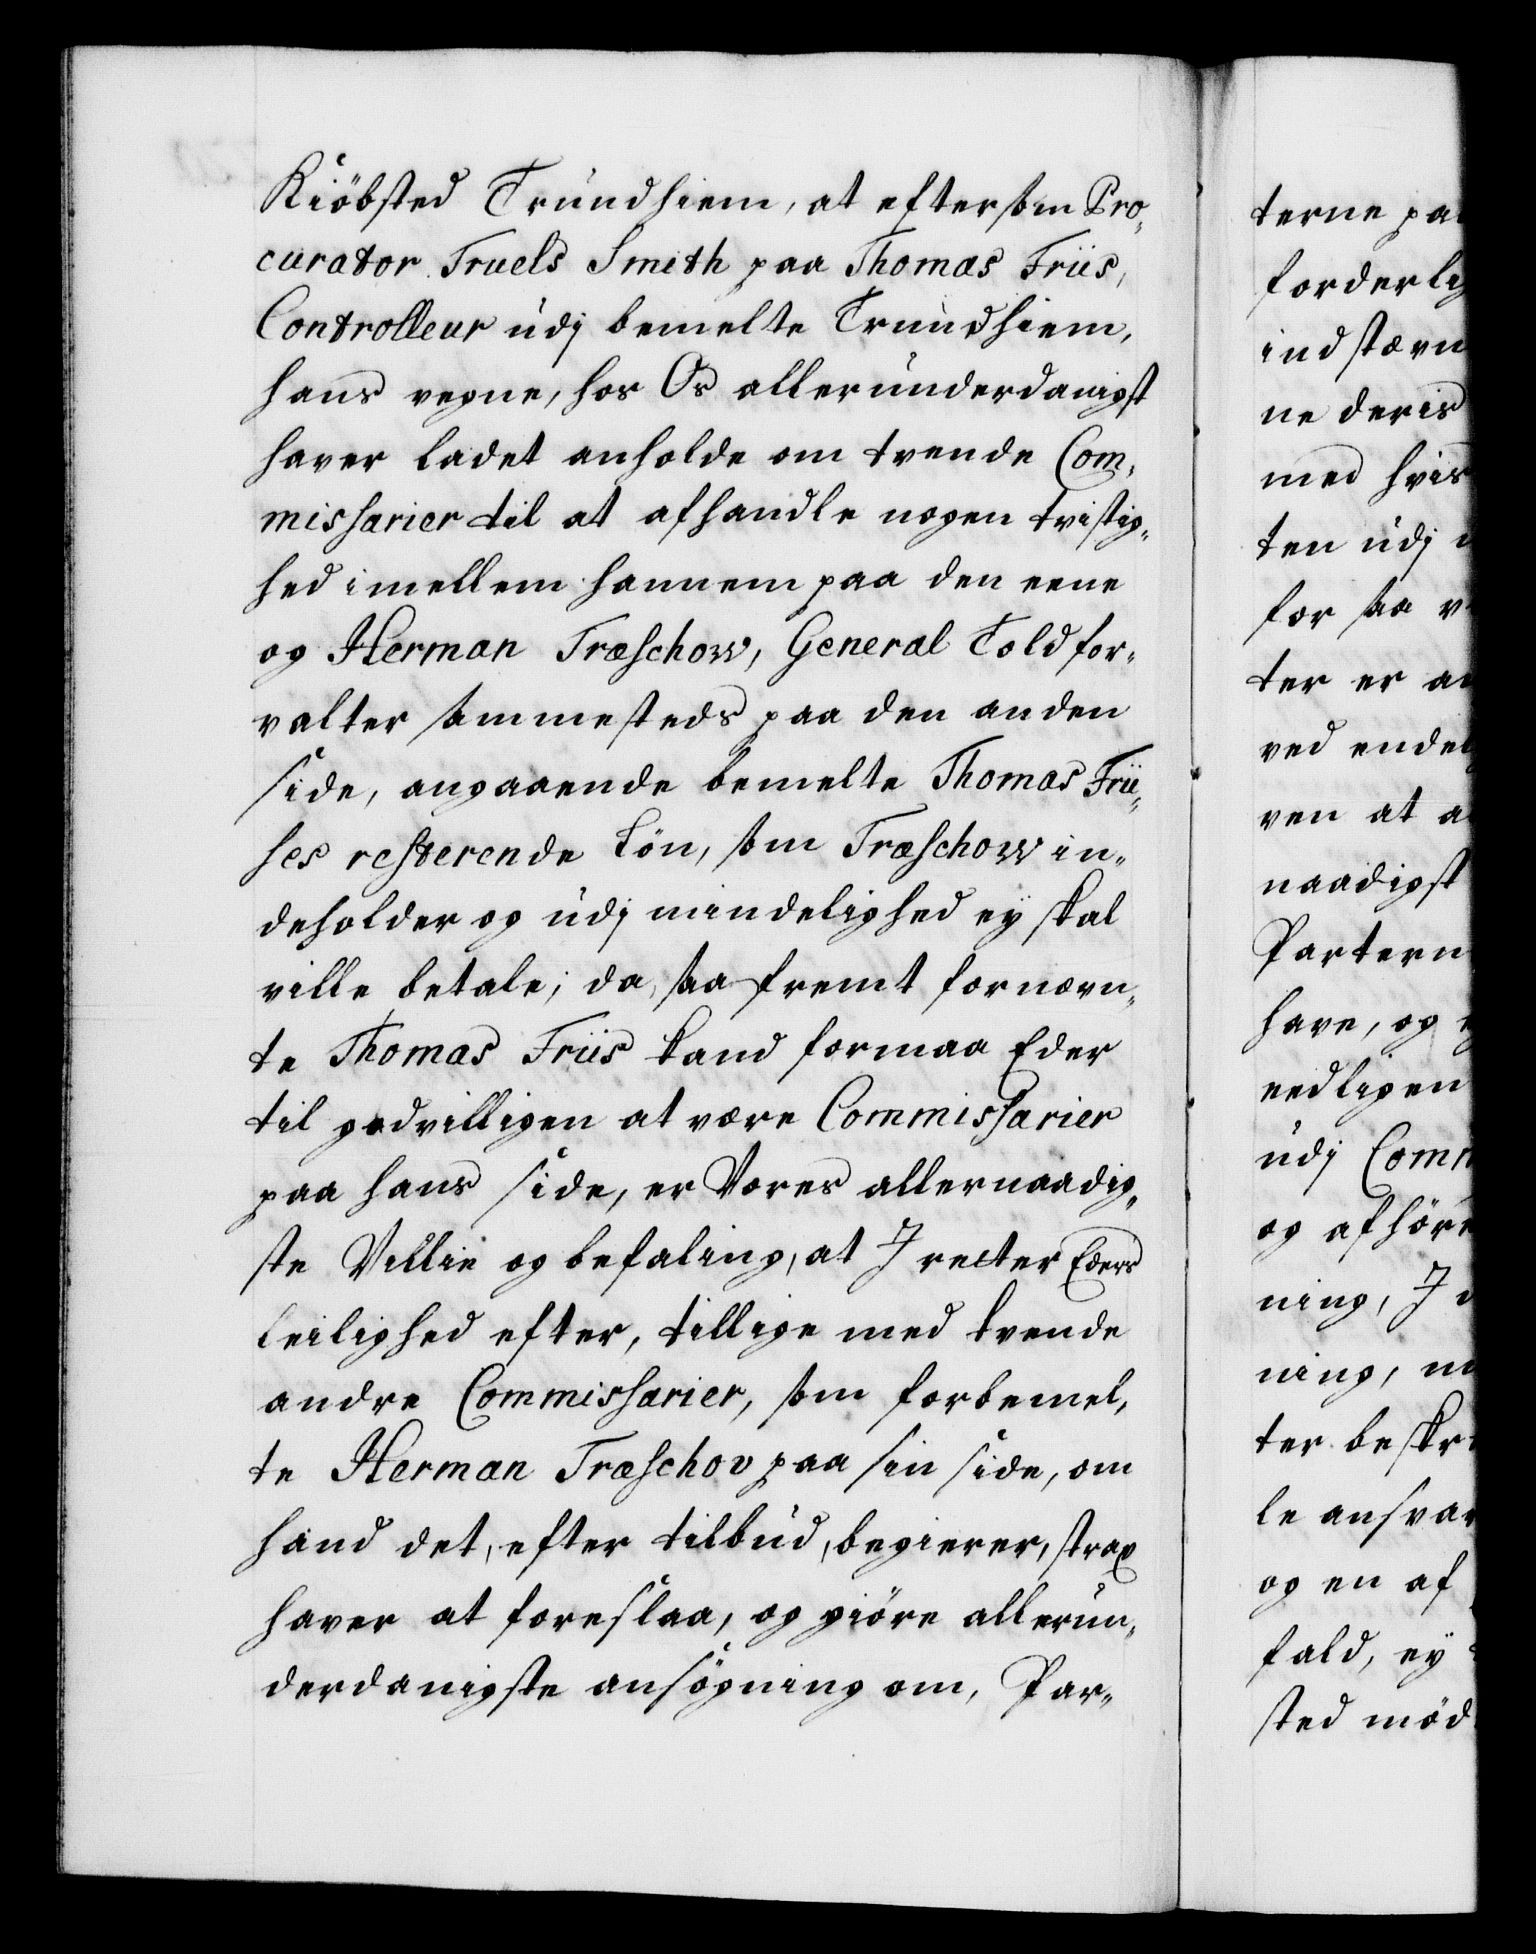 Kiöbsted Trundhiem, at eftersom Pro„
curator Truels Smith paa Thomas Friis,
Controlleur udj bemelte Trundhiem,
hans vegne, hos Os allerunderdanigst
haver ladet anholde om tvende Com„
missarier til at afhandle nogen tvistig„
hed imellem hannem paa den eene
og Herman Træschow, General Toldfor„
valter sammesteds paa den anden
side, angaaende bemelte Thomas Frii„
ses resterende Lön, som Træschow in„
deholder og udj mindelighed ey skal
ville betale; da, saafremt fornævn„
te Thomas Friis kand formaa Eder
til godvilligen at være Commissarier
paa hans side, er Vores allernaadig„
ste Villie og befaling, at J retter Eders
leilighed efter, tillige med tvende
andre Commissarier, som forbemel„
te Herman Træschov paa sin side, om
hand det, efter tilbud, begierer, strax
haver at foreslaa, og giöre allerun„
derdanigste ansögning om, Par„
terne paa
forderlig
indstævn
ne deris
med hvis
ten udj
for saa v
ter er an
ved endel
ven at a
naadigst
Partern
have, og
eedligen
udj Comm
og afhöre
ning, J
ning, m
ter beskr
le ansvar
og en af
fald, ey
sted möd